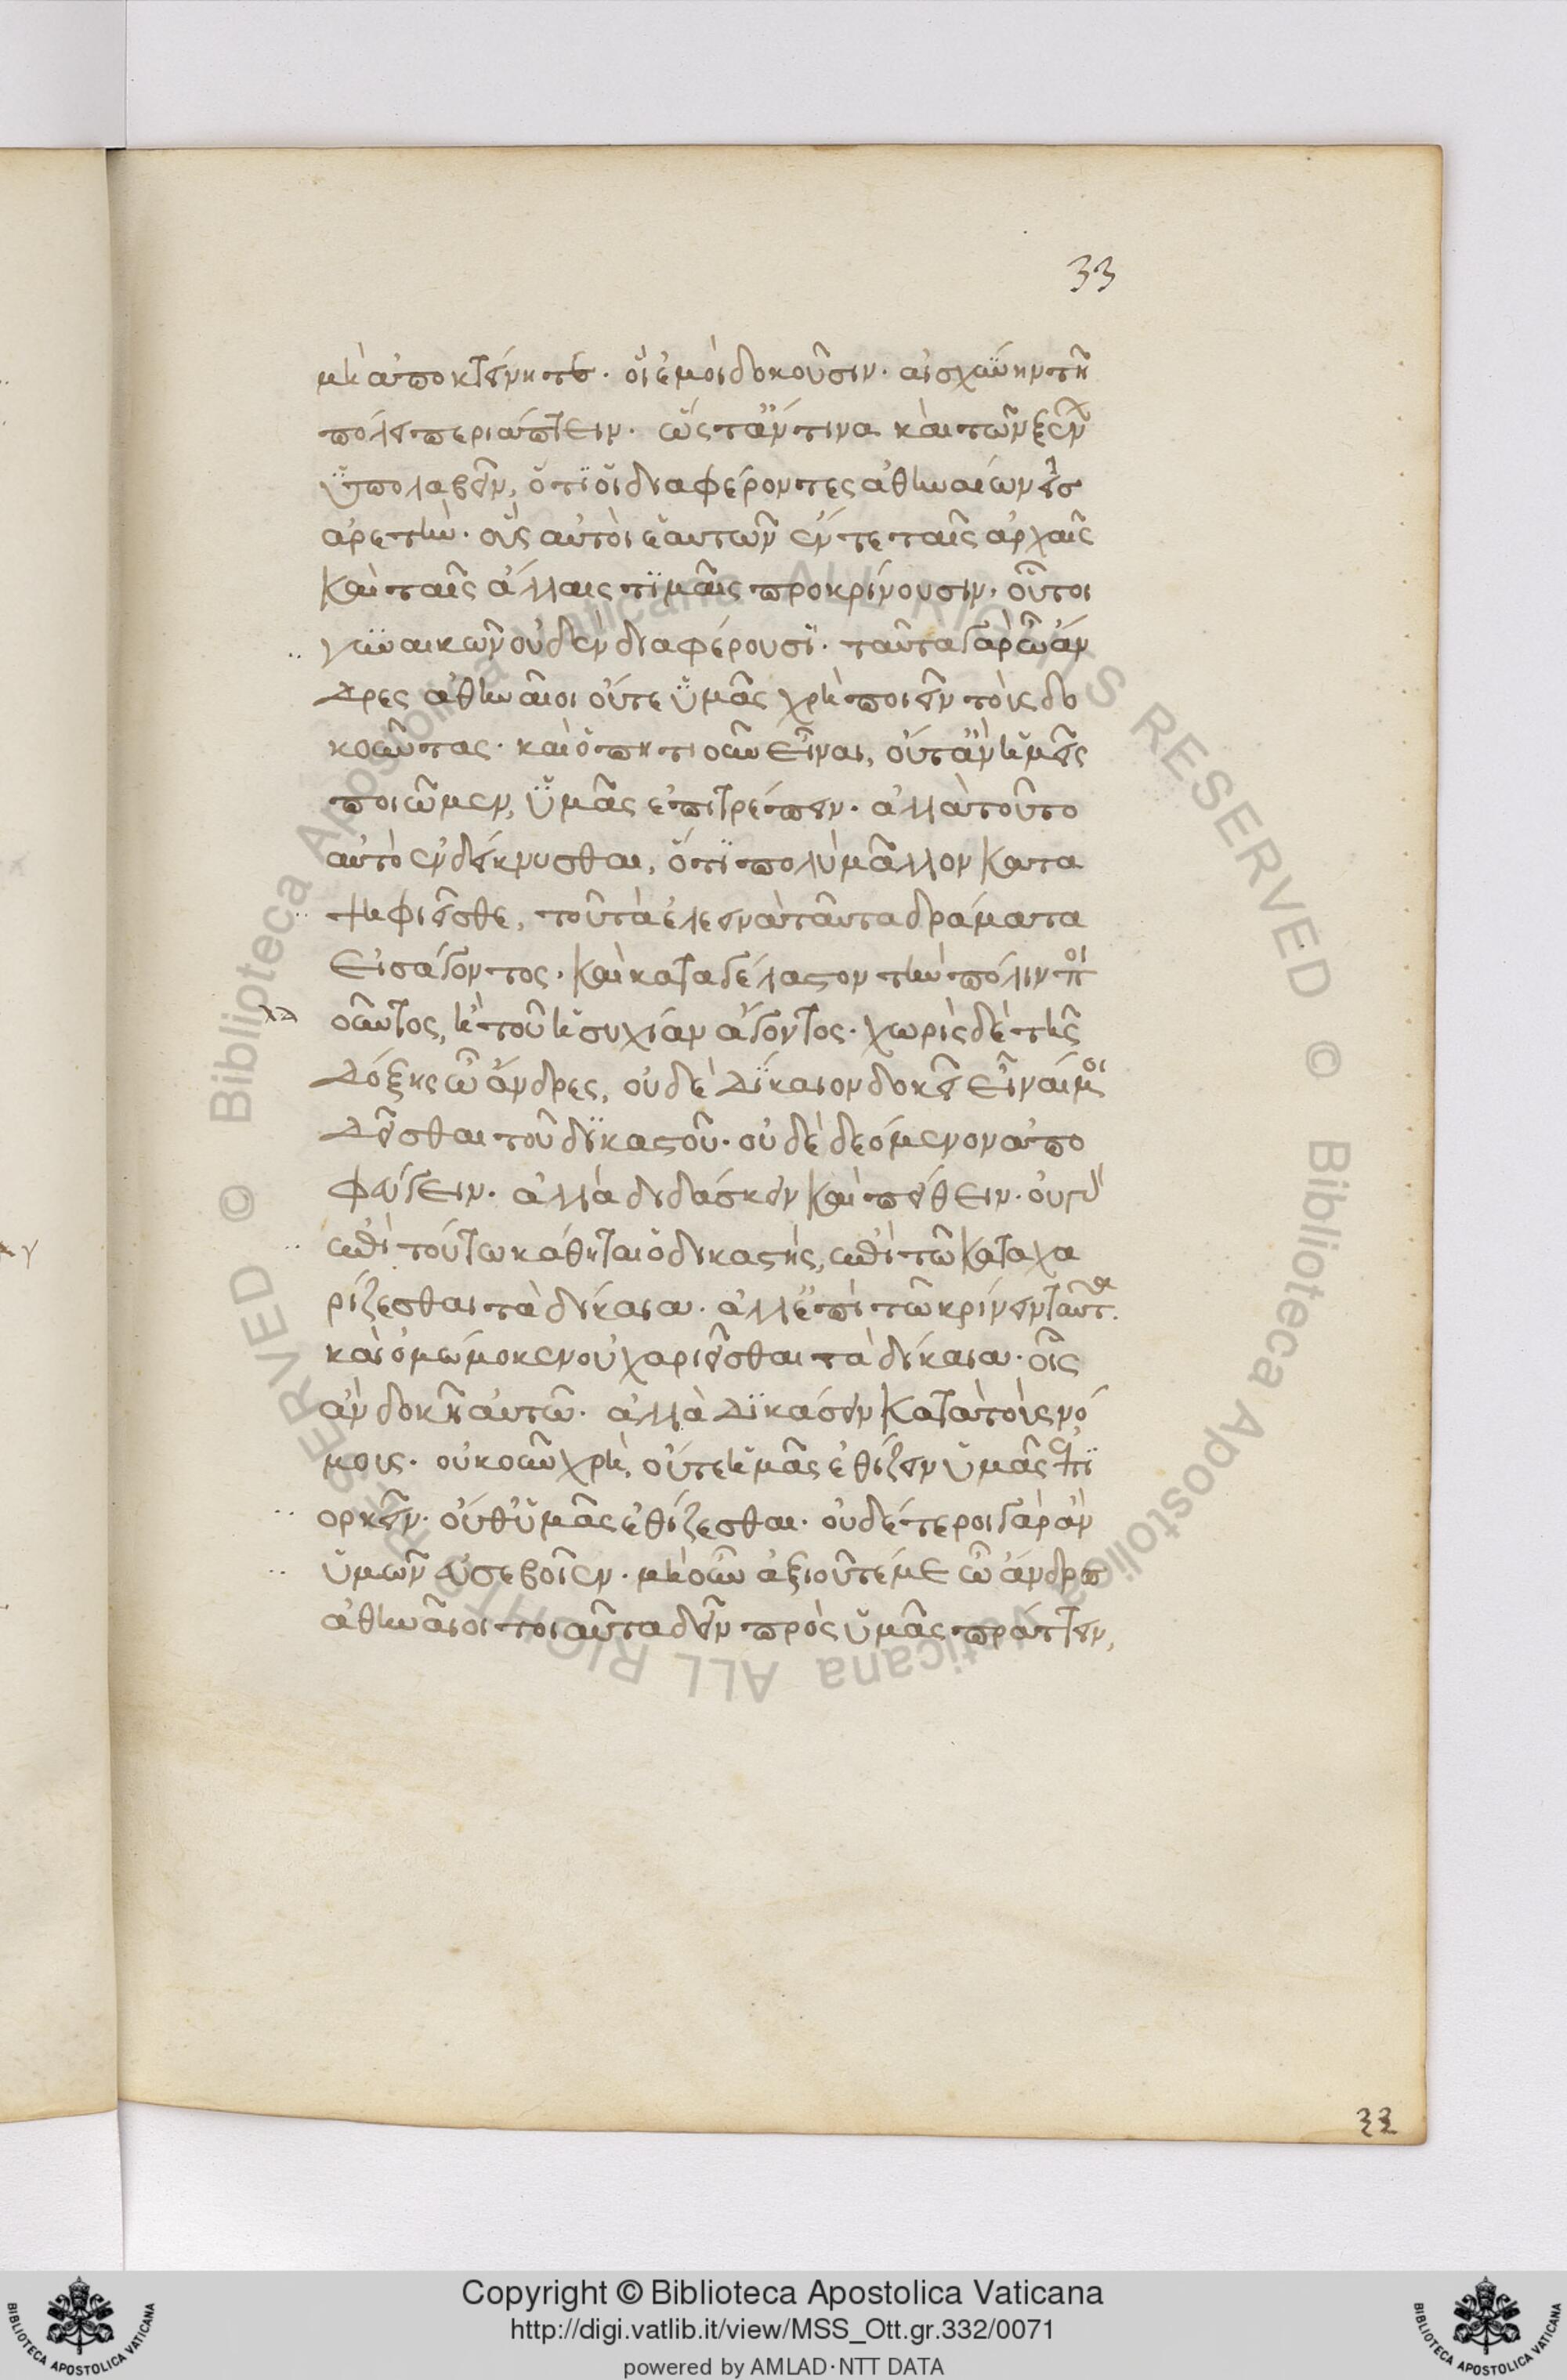 33
μὴ ἀποκτείνητε· οἳ ἐμοὶ δοκοῦσιν· αἰσχύνην τῆ
πόλει περιάπτειν· ὥς τ' ἄν τινα καὶ τῶν ξένων
ὑπολαβεῖν, ὅτι οἱ διαφέροντες ἀθηναίων εἰσ
ἀρετὴν· οὓς αὐτοὶ ἑαυτῶν ἔν τε ταῖς ἀρχαῖς
καὶ ταῖς ἄλλαις τιμαῖς προκρίνουσιν, οὗτοι
γυναικῶν οὐδὲν διαφέρουσι· ταῦτα γὰρ ὦ ἄν
δρες ἀθηναῖοι οὔτε ὑμᾶς χρὴ ποιεῖν τοὺς δο
κοῦντας· καὶ ὅπητι οῦν εἶναι, οὔτ' ἂν ἡμεῖς
ποιῶμεν, ὑμᾶς ἐπιτρέπειν· ἀλλὰ τοῦτο
αὐτὸ ἐνδείκνυσθαι, ὅτι πολὺ μᾶλλον κατα
ψηφιεῖσθε, τοῦ τὰ ἐλεεινὰ ταῦτα δράματα
εἰσάγοντος· καὶ καταγέλαστον τὴν πόλιν ποι
οῦντος, ἢ τοῦ ἡσυχίαν ἄγοντος· χωρὶς δὲ τῆς
δόξης ὦ ἄνδρες, οὐδὲ δίκαιον δοκεῖ εἶναί μοι
δεῖσθαι τοῦ δικαστοῦ· οὐδὲ δεόμενον ἀπο
φεύγειν· ἀλλὰ διδάσκειν καὶ πείθειν· οὐ γὰρ
ἐπὶ τούτω κάθηται ὁ δικαστής, ἐπὶ τῶ καταχα
ρίζεσθαι τὰ δίκαια· ἀλλ' ἐπὶ τῶ κρίνειν ταῦτα.
καὶ ὀμώμοκεν οὐ χαριεῖσθαι τὰ δίκαια· οἷς
ἂν δοκῆ αὐτῶ· ἀλλὰ δικάσειν κατὰ τοὺς νό
μους· οὐκοῦν χρὴ, οὔτε ἡμᾶς ἐθίζειν ὑμᾶς ἐπι
ορκεῖν· οὔθ' ὑμᾶς ἐθίζεσθαι· οὐδέτεροι γὰρ ἂν
ὑμῶν εὐσεβοῖεν· μὴ οῦν ἀξιοῦτέ με ὦ ἄνδρες
ἀθηναῖοι τοιαῦτα δεῖν πρὸς ὑμᾶς πράττειν,
33
Copyright © Biblioteca Apostolica Vaticana
http://digi.vatlib.it/view/MSS_Ott.gr.332/0071
powered by AMLAD·NTT DATA